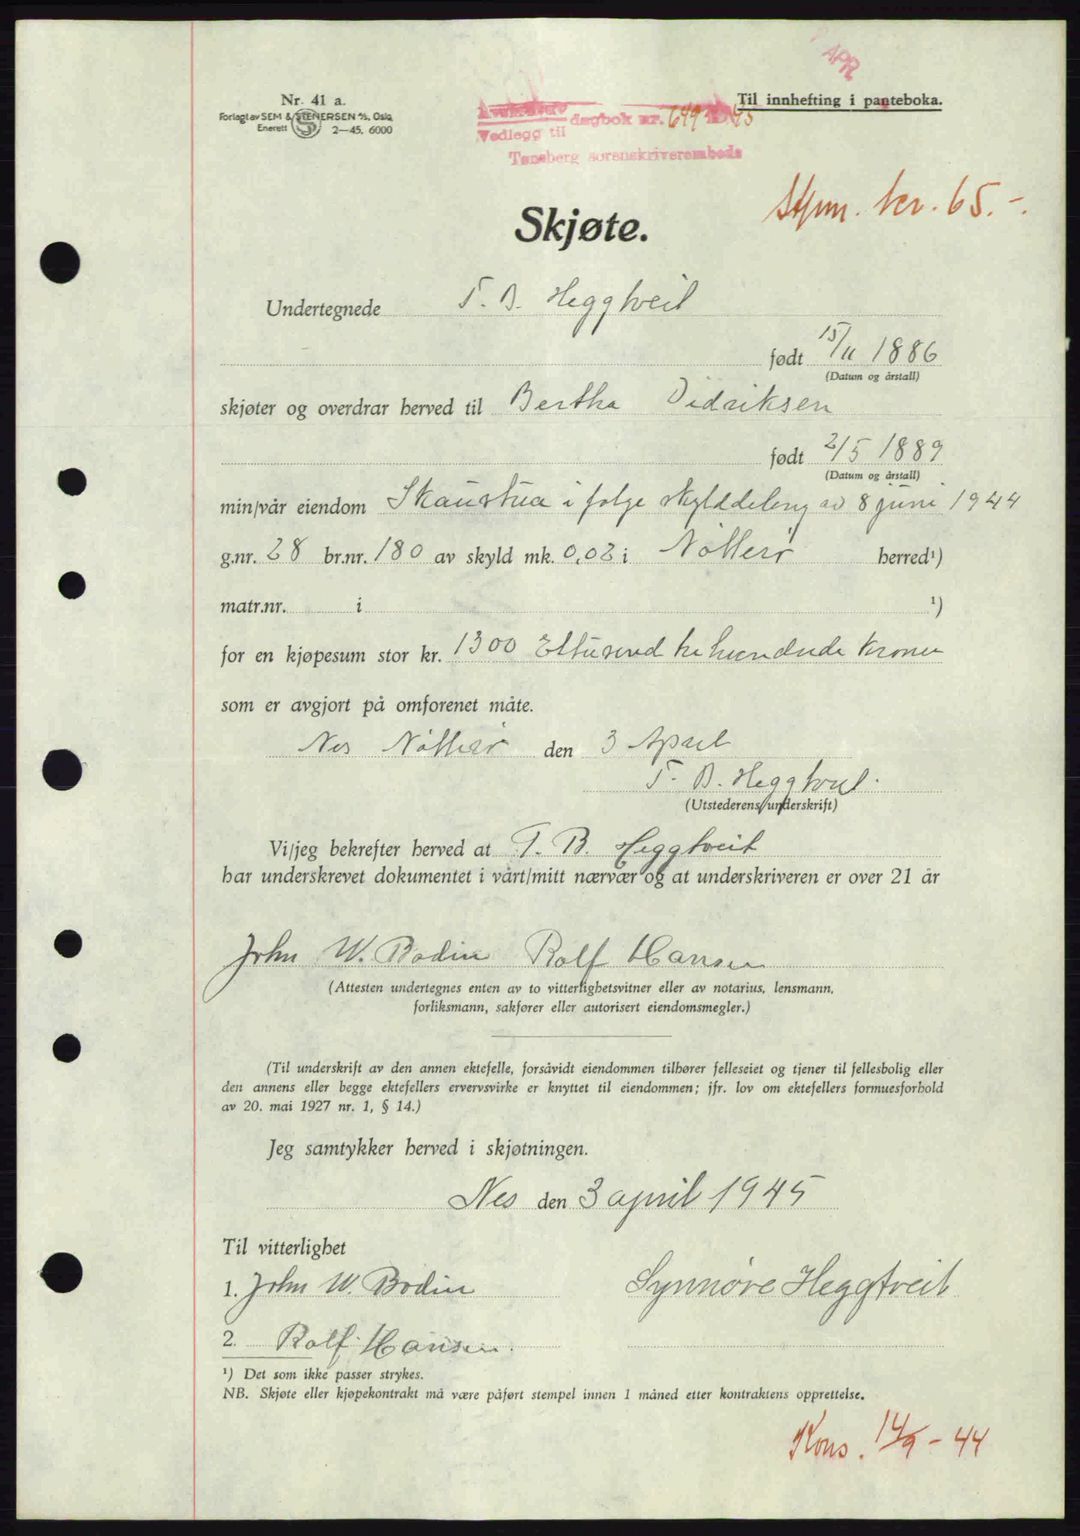 APR
Nr. 41 a.
Forlagt av SEM & STENERSEN A/S, Oslo
Enerett S 2—45. 6000
Avskrift av
Vedlegg til dagbok nr. 649 1945
Tønsberg sorenskriverembede
Til innhefting i panteboka.
Stpm. kr. 65.-.
Skjøte.
Undertegnede T. B. Heggtveit
født 15/11 1886
(Datum og årstall)
skjøter og overdrar herved til Bertha Didriksen
født 2/5 1889
(Datum og årstall)
min/vår eiendom Skaustua i følge skylddeling av 8 juni 1944
g.nr. 28 br.nr. 180 av skyld mk. 0,02 i Nøtterø herred¹)
matr.nr. i ¹)
for en kjøpesum stor kr. 1300 Ettusend tre hundrede kroner
som er avgjort på omforenet måte.
Nes Nøtterø den 3 April
T. B. Heggtveit.
(Utstederens underskrift)
Vi/jeg bekrefter herved at T. B. Heggtveit
har underskrevet dokumentet i vårt/mitt nærvær og at underskriveren er over 21 år
John W. Bodin Rolf Hansen
(Attesten undertegnes enten av to vitterlighetsvitner eller av notarius, lensmann,
forliksmann, sakfører eller autorisert eiendomsmegler.)
(Til underskrift av den annen ektefelle, forsåvidt eiendommen tilhører felleseiet og tjener til fellesbolig eller
den annens eller begge ektefellers ervervsvirke er knyttet til eiendommen; jfr. lov om ektefellers formuesforhold
av 20. mai 1927 nr. 1, § 14.)
Jeg samtykker herved i skjøtningen.
Nes den 3 april 1945
Til vitterlighet
1. John W. Bodin Synnøve Heggtveit
2. Rolf Hansen.
¹) Det som ikke passer strykes.
NB. Skjøte eller kjøpekontrakt må være påført stempel innen 1 måned etter kontraktens opprettelse.
Kons. 14/9 - 44